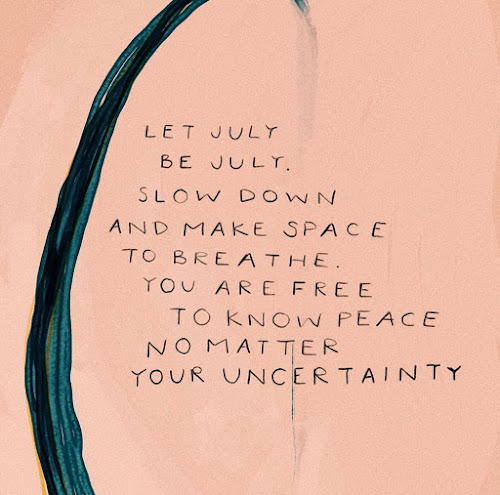 LET JULY
BE JULY.
SLOW DOWN
AND MAKE SPACE
TO BREATHE.
YOU ARE FREE
TO KNOW PEACE
NO MATTER
YOUR UNCERTAINTY